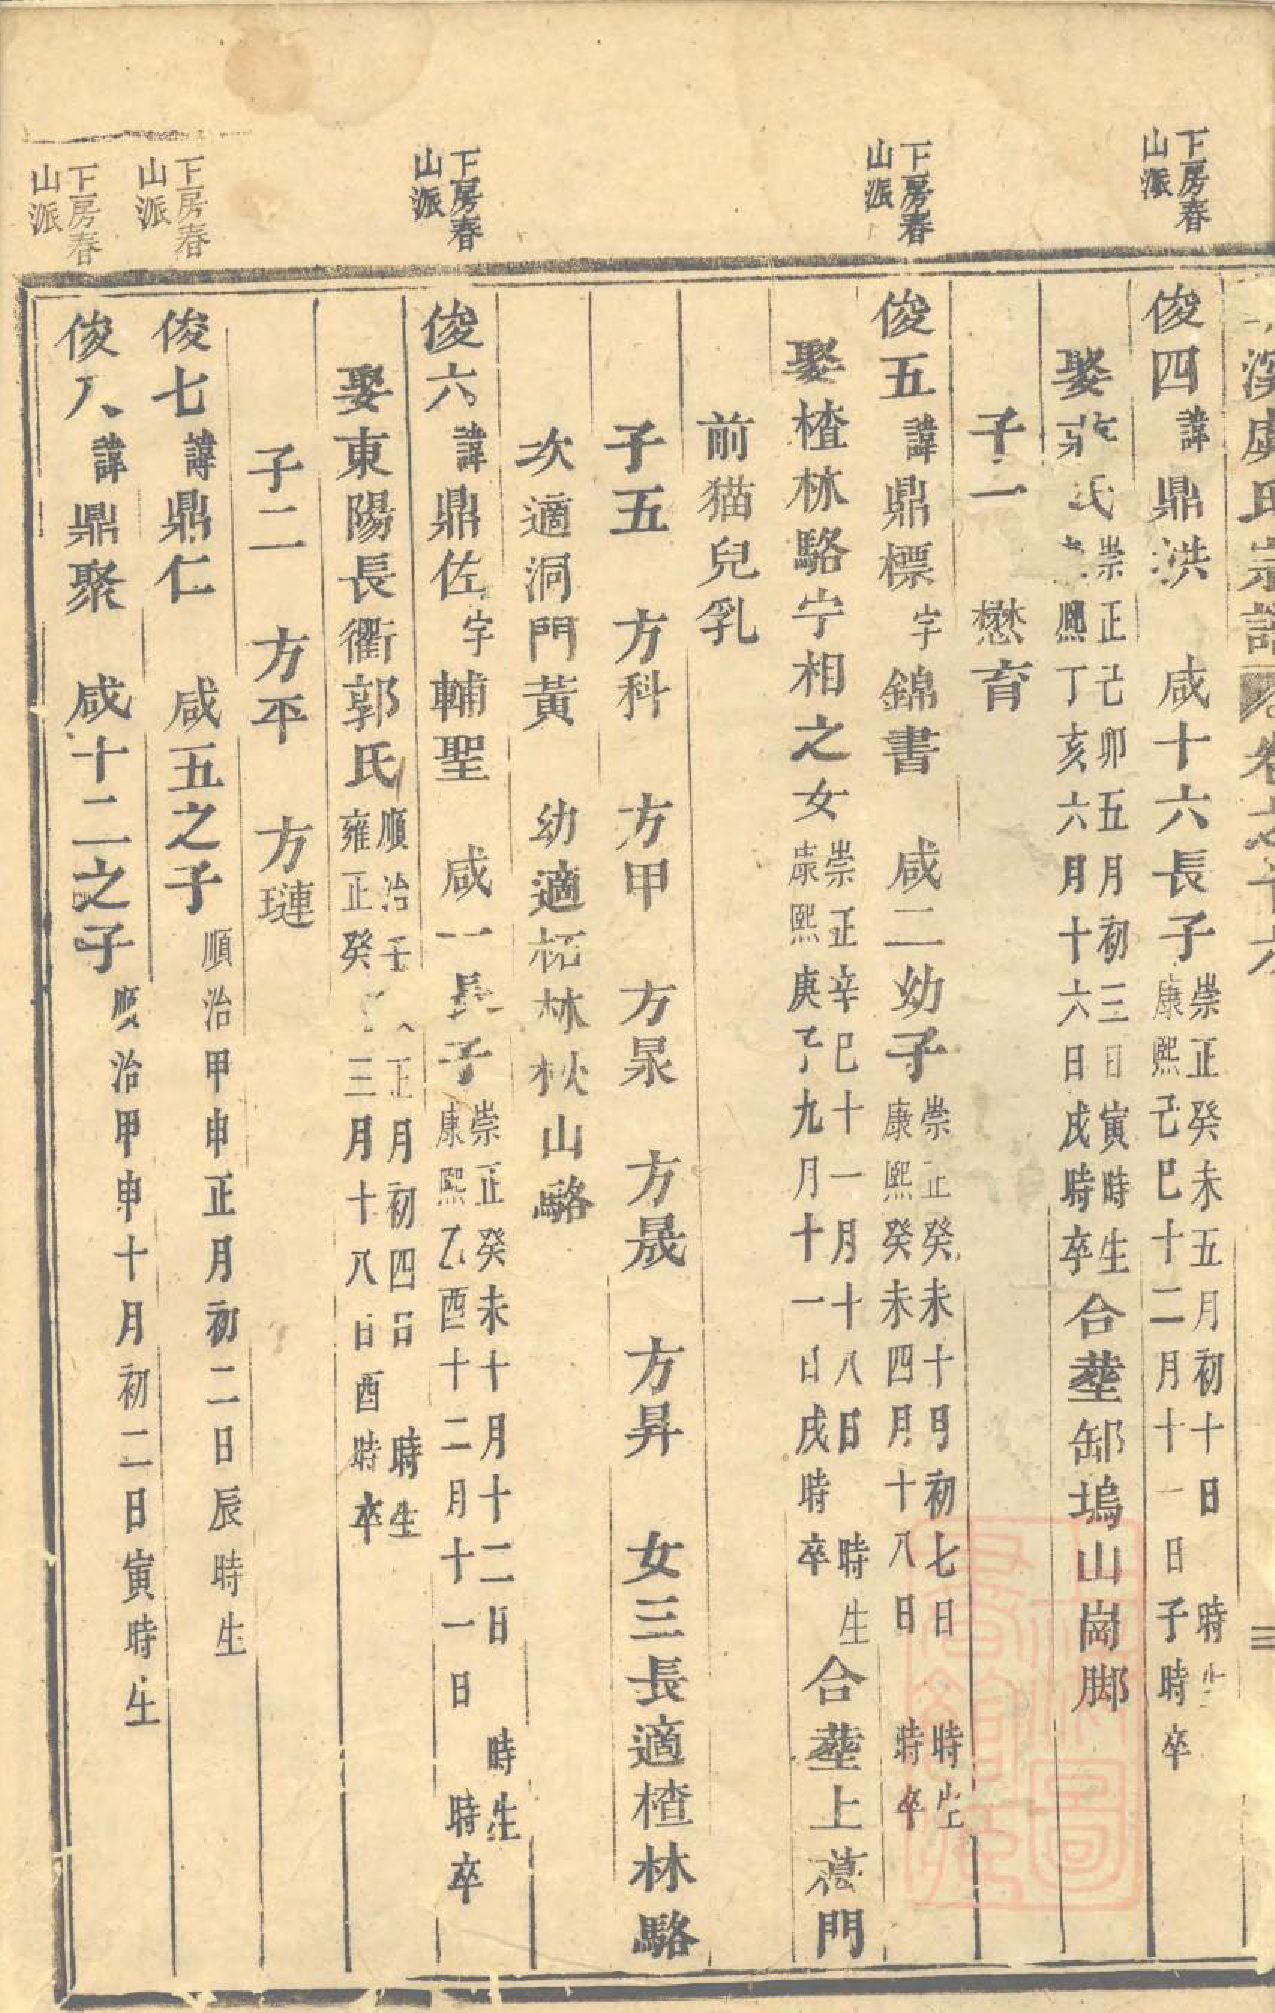 溪虞氏宗譜 卷之十六 三
下房春
山派
俊四 諱鼎洪 咸十六長子 崇正癸未五月初十日 時生
康熙己巳十二月十一日子時卒
娶 氏 崇正己卯五月初三日寅時生
康熙丁亥六月十六日戌時卒 合塟 塢山崗脚
子一 懋育
下房春
山派
俊五 諱鼎標 字錦書 咸二幼子 崇正癸未十月初七日 時生
康熙癸未四月十八日 時卒
娶楂林駱宁相之女 崇正辛巳十一月十八日 時生
康熙庚子九月十一日戌時卒 合塟上 門
前猫兒乳
子五 方科 方甲 方杲 方晟 方昇 女三長適楂林駱
次適洞門黃 幼適柘林秋山駱
下房春
山派
俊六 諱鼎佐 字輔聖 咸一長子 崇正癸未十月十二日 時生
康熙乙酉十二月十一日 時卒
娶東陽長衢郭氏 順治壬 正月初四日 時生
雍正癸 三月十八日酉時卒
子二 方平 方璉
下房春
山派
俊七 諱鼎仁 咸五之子 順治甲申正月初二日辰時生
下房春
山派
俊八 諱鼎聚 咸十二之子 順治甲申十月初二日寅時生